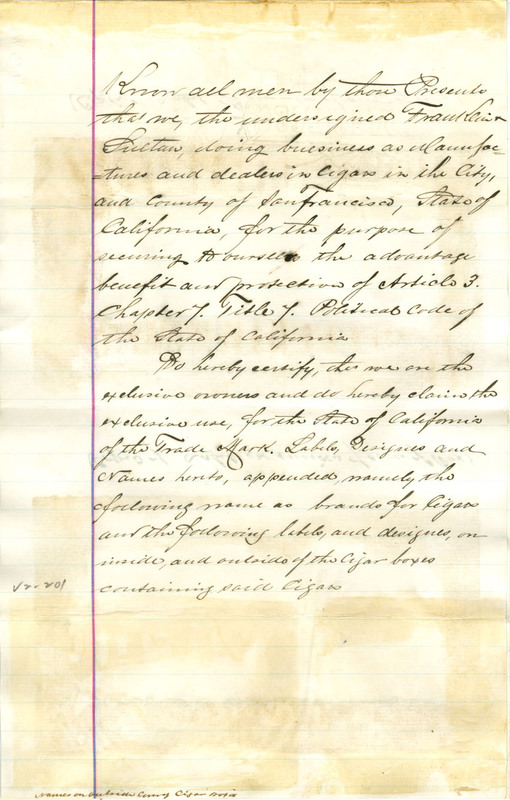 Know all men by these Presents
that we, the undersigned Franklin &
doing buesiness as Manufac-
-tures and dealers in Cigars in the City,
and County of San Francisco, State of
California, for the purpose of
securing to ourselves the advantage
benefit and protection of Article 3.
Chapter 7. Title 7. Political Code of
the State of California
Do hereby certify, that we are the
exclusive owners and do hereby claim the
exclusive use, for the State of California
of the Trade Mark. Labels, Designes and
Names herto, appended, namely the
following name as brands for Cigars
and the following labels, and designes, on
inside, and outside of the Cigar boxes
containing said Cigars
Names on outside Cover of Cigar boxes